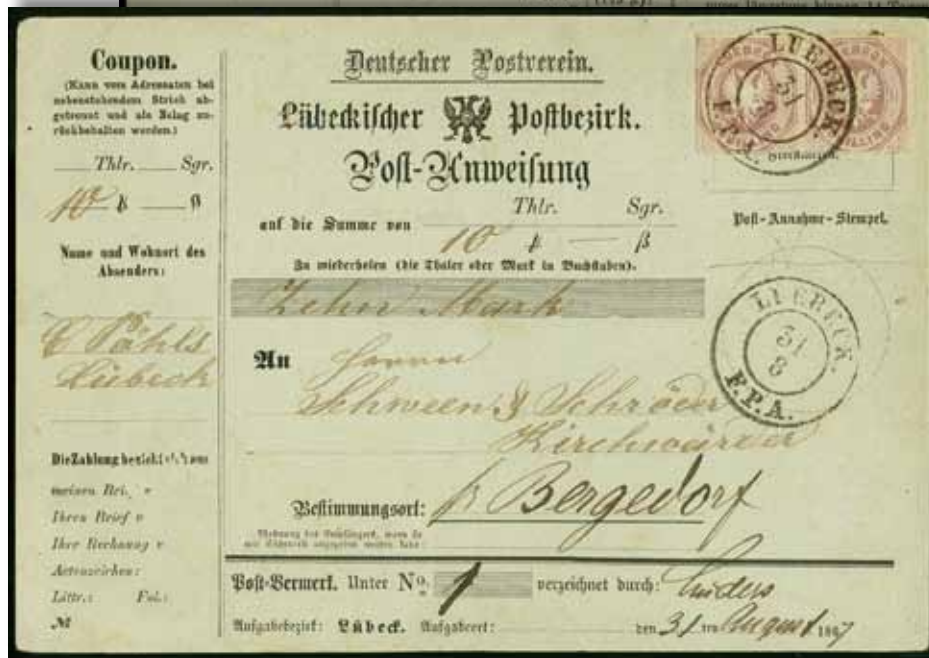 Coupon.
(Kann vom Adressaten bei
nebenstehendem Strich ab-
getrennt und als Belag zu-
rückbehalten werden.)
Thlr. Sgr.
10 ₰ — β
Name und Wohnort des
Absenders:
C Pähls
Lübeck
Die Zahlung bezieht sich aus
meinen Bri. v
Ihren Brief v
Ihre Rechnung v
Actenzeichen:
Littr.: Fol.:
№
Deutscher Postverein.
Lübeckischer Postbezirk.
Post-Anweisung
Thlr. Sgr.
auf die Summe von 10 ₰ — β
Zu wiederholen (die Thaler oder Mark in Buchstaben).
Zehn Mark
An Herrn
Schween & Schröder
Kirchwärder
Bestimmungsort: pr Bergedorf
Wohnung des Empfängers, wenn sie
Post-Vermerk. Unter No. 1 verzeichnet durch: Lüders
Aufgabebezirk: Lübeck. Aufgabeort: den 31 ten August 1867
LUEBECK.
31
8
F.P.A.
Post-Annahme-Stempel.
LUEBECK.
31
8
F.P.A.